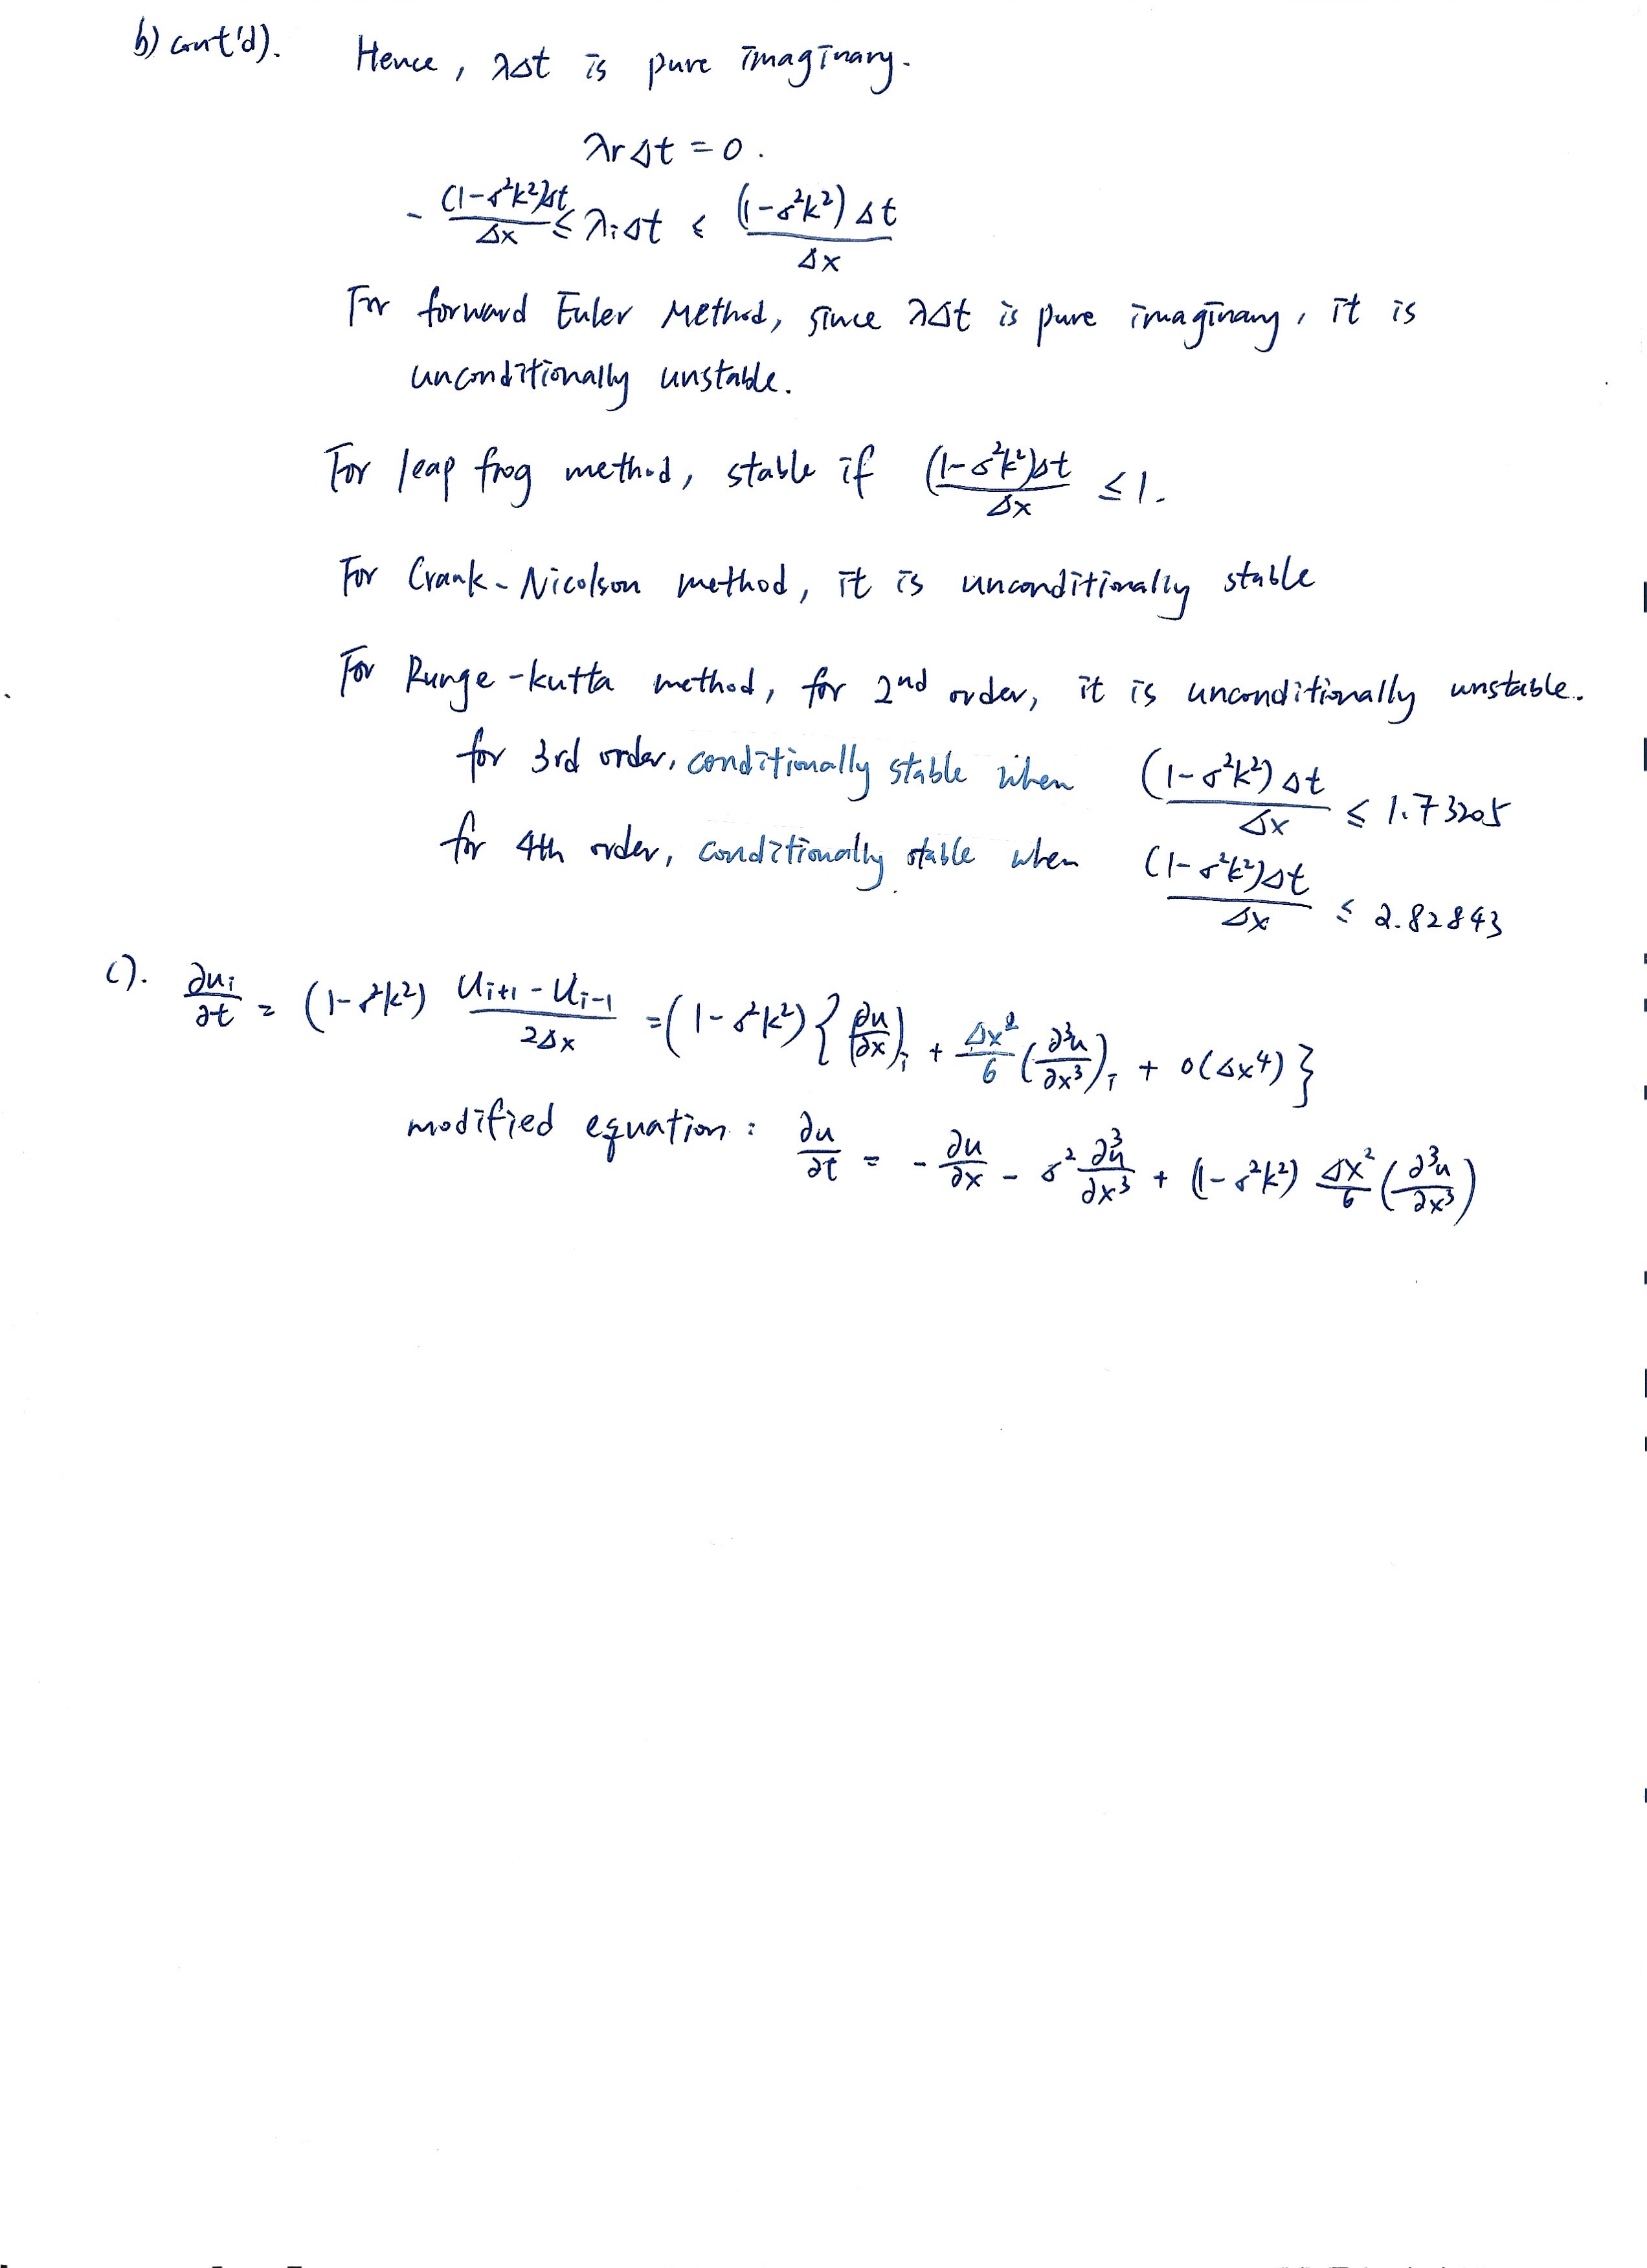 b) cont'd). Hence, λΔt is pure imaginary.
λrΔt = 0.
- (1-δ²k²)Δt/Δx ≤ λiΔt ≤ (1-δ²k²)Δt/Δx
For forward Euler Method, since λΔt is pure imaginary, it is
unconditionally unstable.
For leap frog method, stable if (1-δ²k²)Δt/Δx ≤ 1.
For Crank-Nicolson method, it is unconditionally stable
For Runge-kutta method, for 2nd order, it is unconditionally unstable.
for 3rd order, conditionally stable when (1-δ²k²)Δt/Δx ≤ 1.73205
for 4th order, conditionally stable when (1-δ²k²)Δt/Δx ≤ 2.82843
c). ∂ui/∂t = (1-δ²k²) (Ui+1 - Ui-1)/2Δx = (1-δ²k²){(∂u/∂x)i + Δx²/6 (∂³u/∂x³)i + O(Δx⁴)}
modified equation: ∂u/∂t = -∂u/∂x - δ² ∂³u/∂x³ + (1-δ²k²) Δx²/6 (∂³u/∂x³)